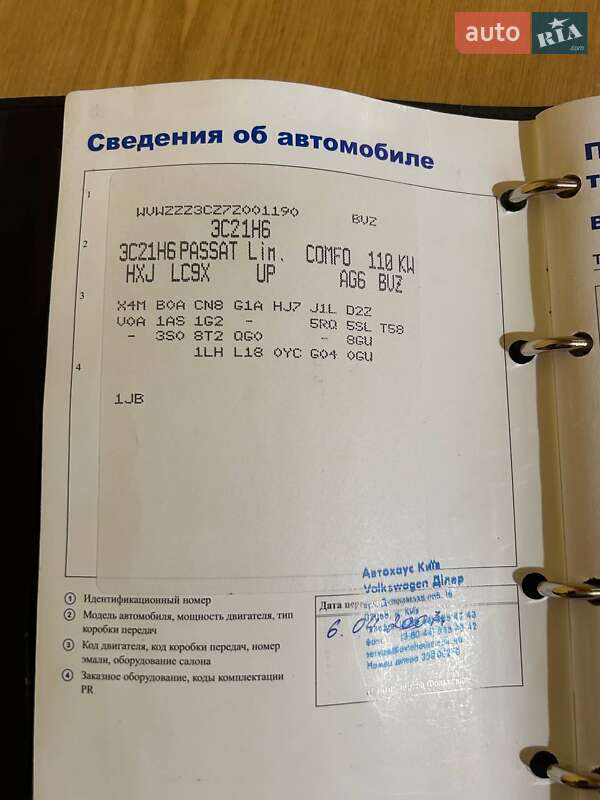 auto RIA .com
Сведения об автомобиле
1
WVWZZZ3CZ7Z001190 BVZ
3C21H6
2
3C21H6 PASSAT Lim. COMFO 110 KW
HXJ LC9X UP AG6 BVZ
3
X4M B0A CN8 G1A HJ7 J1L D2Z
V0A 1AS 1G2 - 5RQ 5SL T58
- 3S0 8T2 QG0 - 8GU
4
1LH L18 0YC G04 0GU
1JB
Автохаус Київ
Volkswagen Ділер
1 Идентификационный номер
2 Модель автомобиля, мощность двигателя, тип
коробки передач
3 Код двигателя, код коробки передач, номер
эмали, оборудование салона
4 Заказное оборудование, коды комплектации
PR
Дата
6.